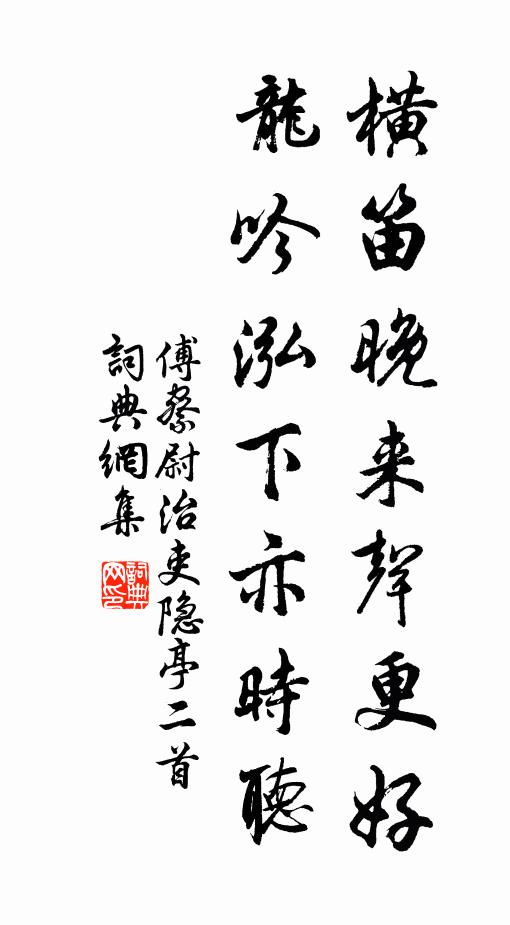 橫笛晚来聲更好
龍吟泓下亦時聽
傅察尉治吏隐亭二首
詞典網集
詞典网印